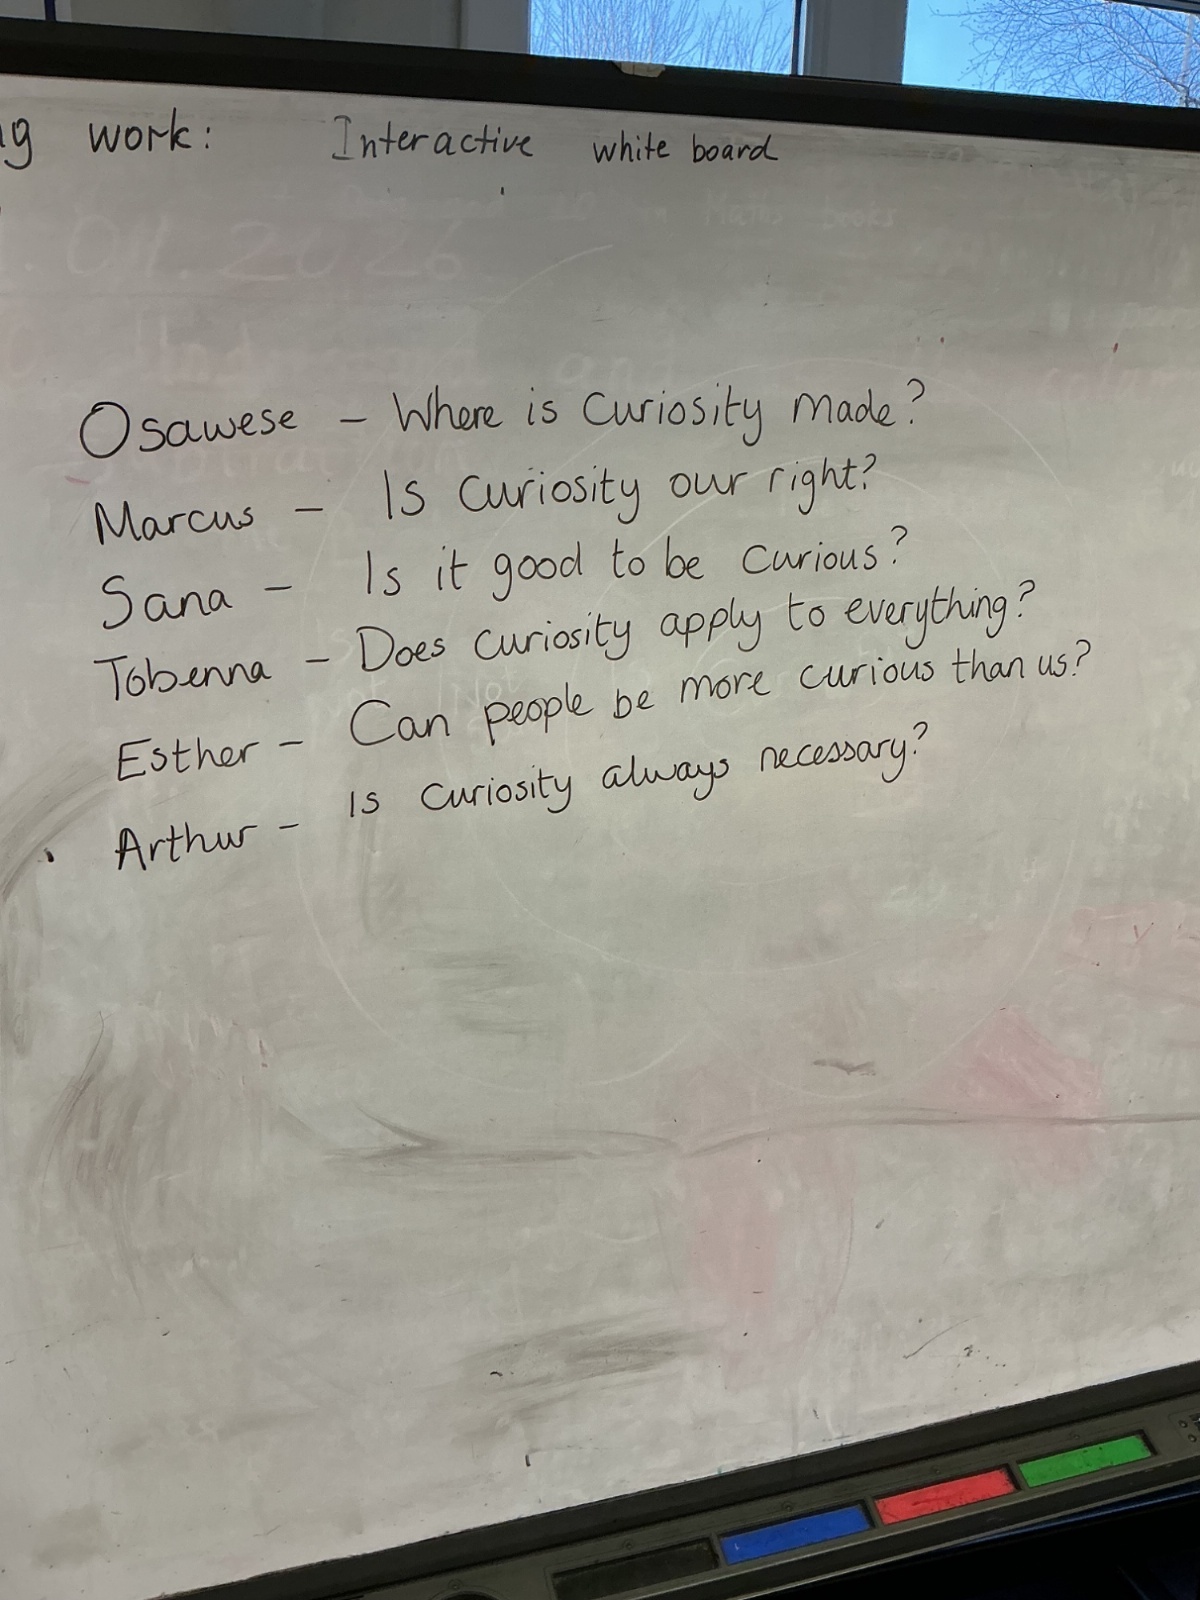 work: Interactive white board
Maths books
04.2026
Osawese – Where is Curiosity made?
Marcus – Is Curiosity our right?
Sana – Is it good to be Curious?
Tobenna – Does curiosity apply to everything?
Esther – Can people be more curious than us?
Arthur – Is Curiosity always necessary?